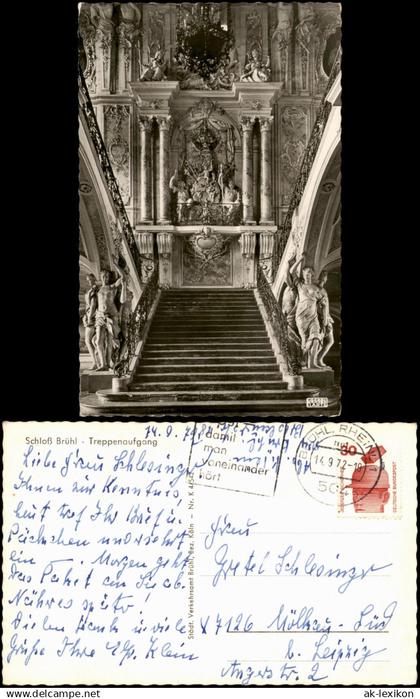 Schloß Brühl - Treppenaufgang
14.9.72
Liebe Frau Schlesinger
Ihnen zur Kenntnis,
heut traf Ihr Brief u.
Päckchen unversehrt
ein Morgen geht
Das Paket an Sie ab.
Näheres später!
Vielen Dank u. viele
Grüße Ihre Klein
Städt. Verkehrsamt Brühl, Bez. Köln - Nr. K 454
damit
man
voneinander
hört
BRÜHL, RHEINL
14.9.72-18
504
30
DEUTSCHE BUNDESPOST
Frau
Gretel Schlesinger
X 7126 Mölkau-Süd
b. Leipzig
Angerstr. 2
© www.ansichtskarten-lexikon.de ak-lexikon